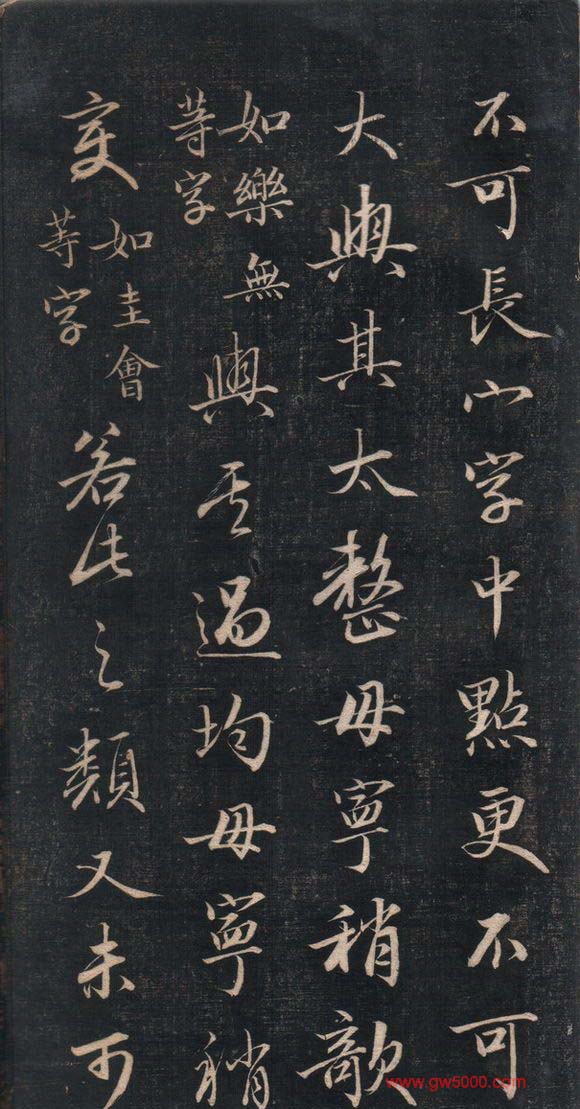 不可長宀字中點更不可
大與其太整毋寧稍欹
如樂無
等字
與其過均毋寧稍
変
如圭會
等字
若此之類又未可
www.gw5000.com